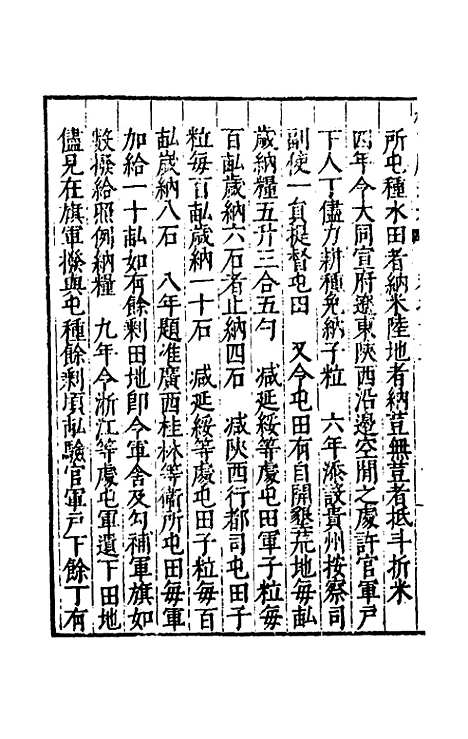 所屯種水田者納米陸地者納荳無荳者抵斗折米
四年令大同宣府遼東陝西沿邊空閒之處許官軍戶
下人丁儘力耕種免納子粒　六年添設貴州按察司
副使一員提督屯田　又令屯田有自開墾荒地每畝
歲納糧五升三合五勺　减延綏等處屯田軍子粒每
百畝歲納六石者止納四石　减陝西行都司屯田子
粒每百畝歲納一十石　减延綏等處屯田子粒每百
畝歲納八石　八年題准廣西桂林等衛所屯田每軍
加給一十畝如有餘剩田地即令軍舍及勾補軍旗如
數撥給照例納糧　九年令浙江等處屯軍遺下田地
儘見在旗軍撥與屯種餘剩頃畝驗官軍戶下餘丁有